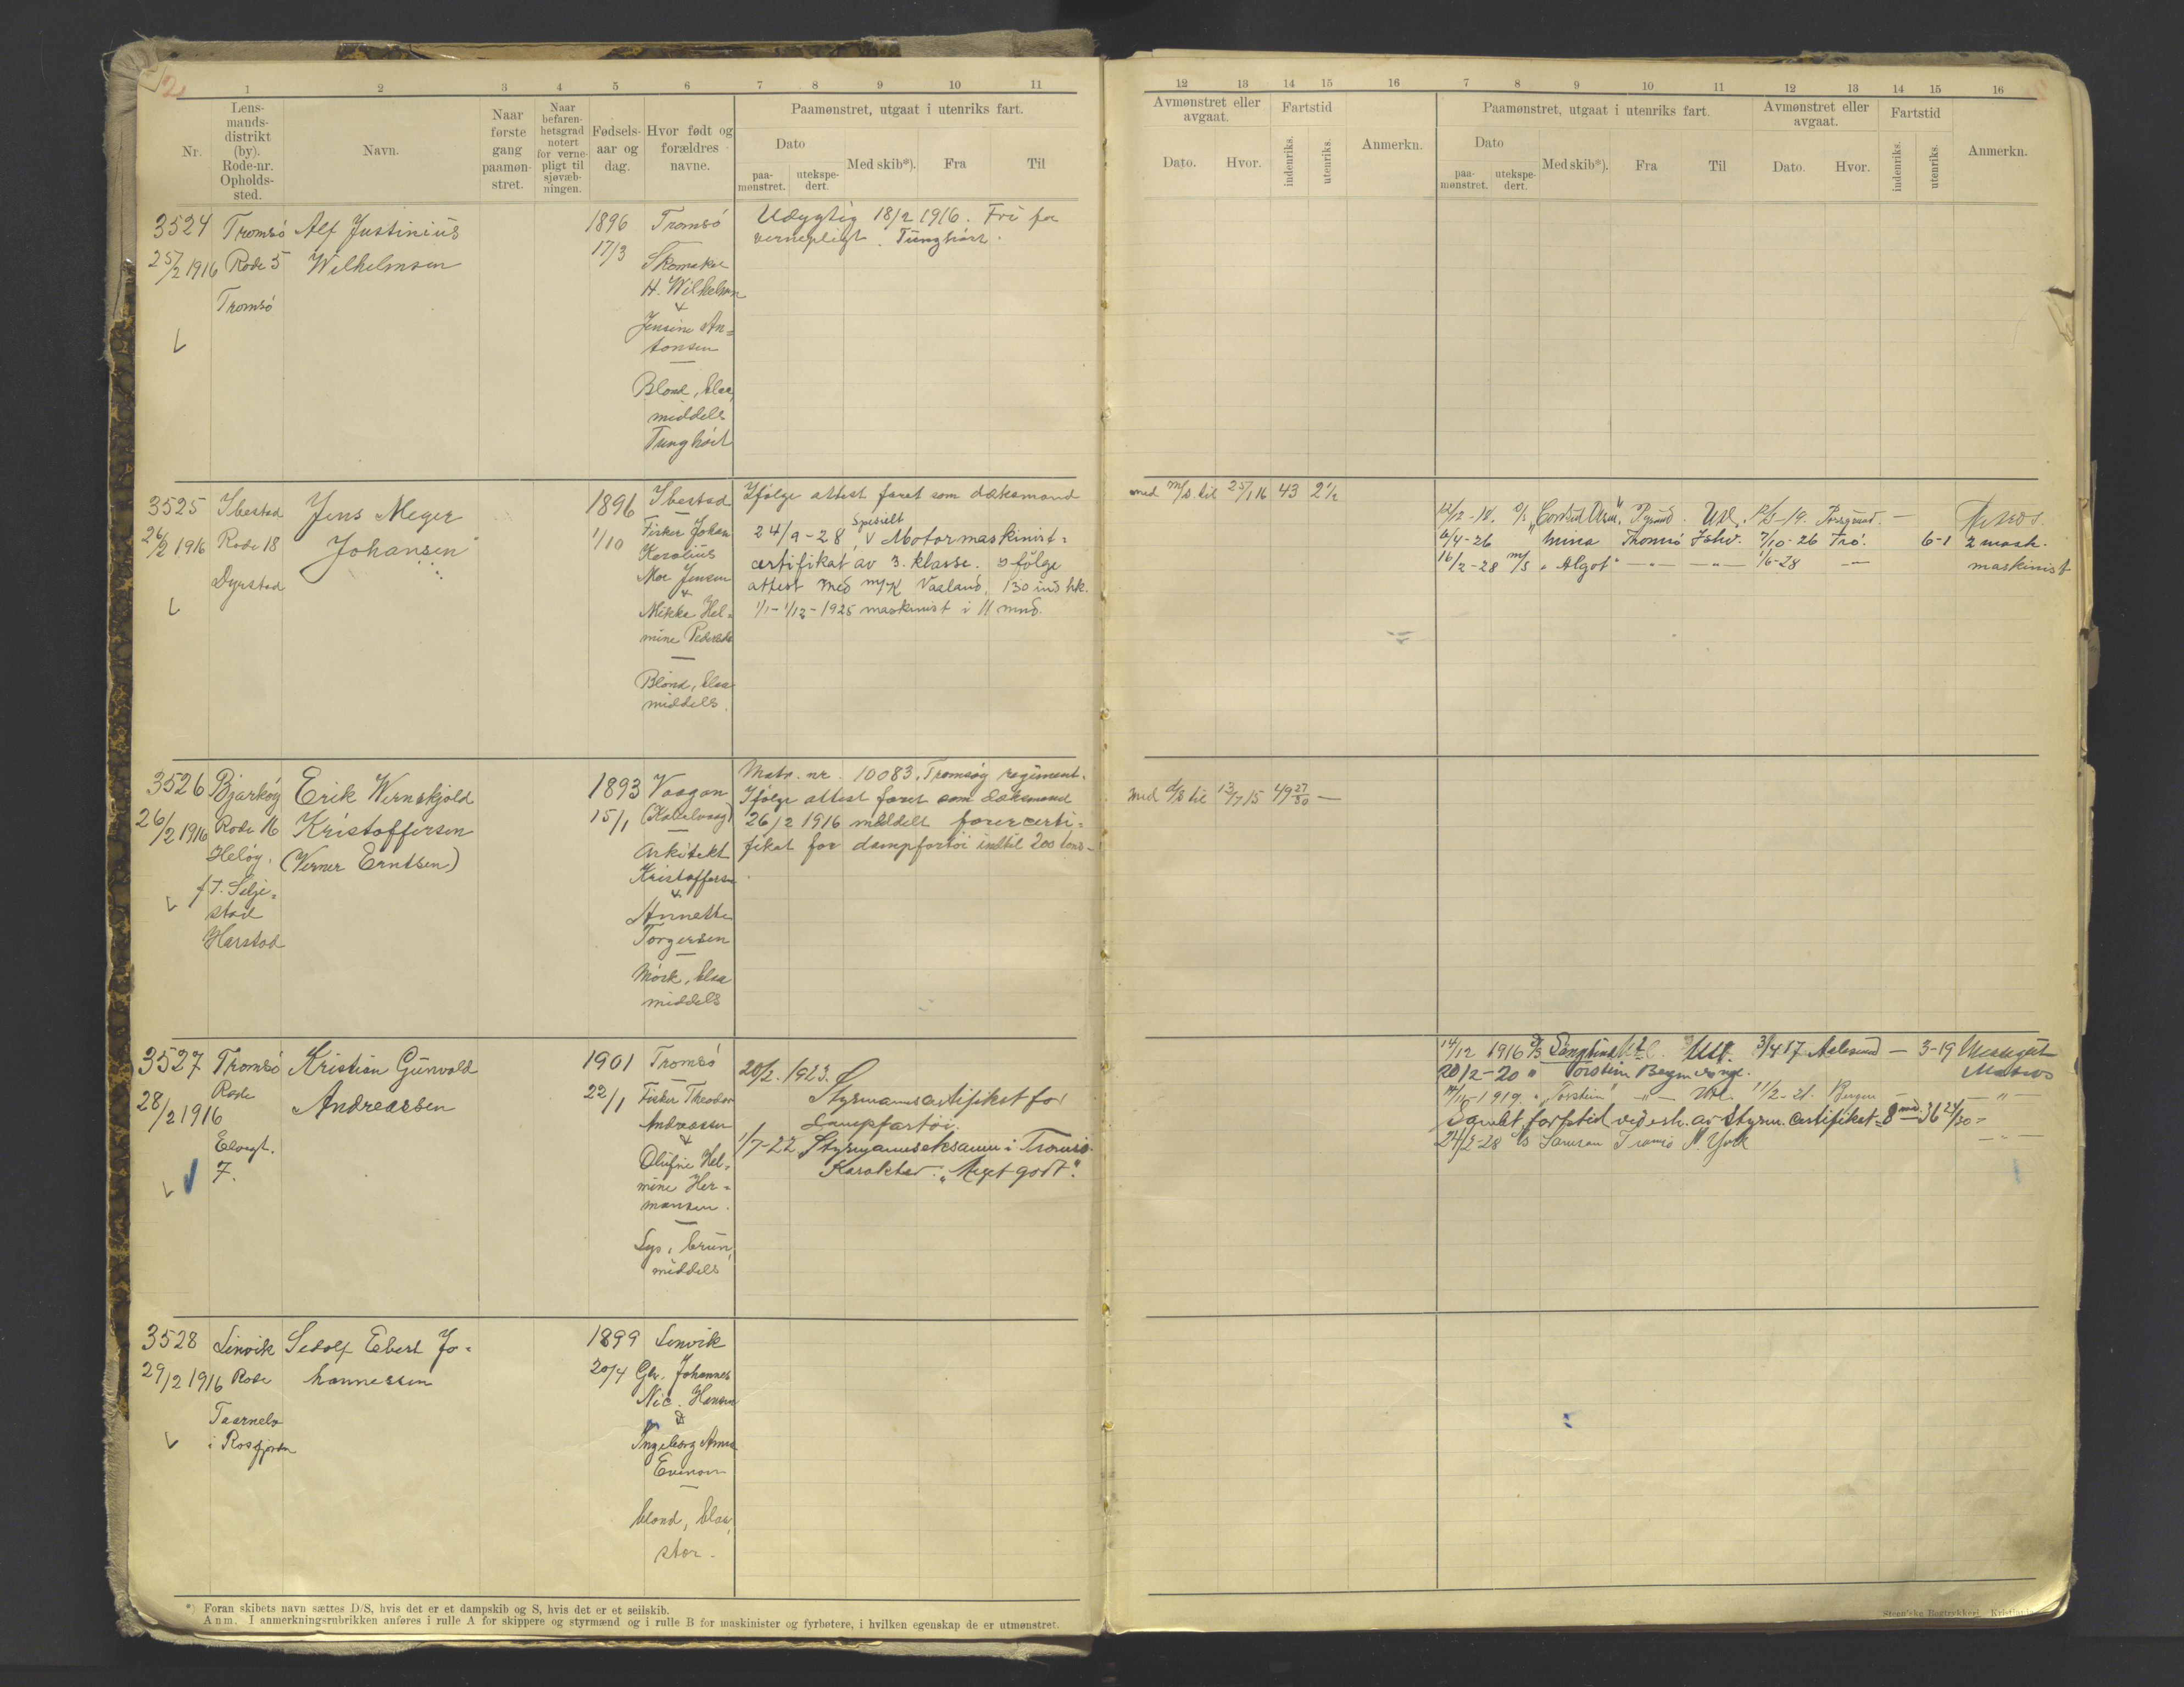 1 2 3 4 5 6 7 8 9 10 11
Nr. Lens-mands-distrikt (by). Rode-nr. Opholds-sted. Navn. Naar første gang paamøn-stret. Naar befaren-hetsgrad notert for verne-pligt til sjøvæb-ningen. Fødsels-aar og dag. Hvor født og forældres navne.
Paamønstret, utgaat i utenriks fart.
Dato
paa-mønstret. utekspe-dert. Med skib*). Fra Til
12 13 14 15 16 7 8 9 10 11 12 13 14 15 16
Avmønstret eller avgaat. Fartstid
Dato. Hvor. indenriks. utenriks. Anmerkn.
Paamønstret, utgaat i utenriks fart. Avmønstret eller avgaat. Fartstid
Dato
paa-mønstret. utekspe-dert. Med skib*). Fra Til Dato. Hvor. indenriks. utenriks. Anmerkn.
3524 Tromsö Alf Justinius 1896 Tromsö
25/2 1916 Rode 5 Wilhelmsen 17/3
Tromsö
Skomaker
H. Wilhelmsen
&
Jensine An=
tonsen
Blond, blaa,
middels
Tunghört
Udygtig 18/2 1916. Fri for
vernepligt. Tunghört.
3525 Ibestad Jens Meyer 1896 Ibestad
26/2 1916 Rode 18 Johansen 1/10
Dyrstad
Fisker Johan
Karolius
Moe Jensen
&
Mikka Hel=
mine Pedersdtr
Blond, blaa
middels.
Ifølge attest faret som dæksmand
med m/s. til 25/1 16 43 2 1/2
24/9-28 spesielt Motormaskinist=
certifikat av 3. klasse. Ifölge
attest med m/k Vaaland, 130 ind hk.
1/1-1/12-1925 maskinist i 11 mnd.
6/4-26 Tromsö Ishv. 7/10-26 Trö. 6-1 2 mask.
16/2-28 m/s "Algot" 1/6-28 maskinist
3526 Bjarköy Erik Wernskjold 1893 Vaagan
26/2 1916 Rode 16 Kristoffersen 15/1 (Kabelvaag)
Helöy. (Verner Erntsen)
f.t. Selje=
stad
Harstad
Arkitekt
Kristoffersen
&
Annette
Torgersen
Mörk, blaa
middels
Matr. nr. 10083, Tromsöy regiment.
Ifölge attest faret som dæksmand
med d/s til 13/7 15 49 27/30 —
26/2 1916 meddelt förercerti=
fikat for dampfartöi indtil 200 tons
3527 Tromsö Kristian Gunvald 1901 Tromsö
28/2 1916 Rode Andreassen 22/1
Elvegt.
7.
Fisker Theodor
Andreassen
&
Olufine Hel=
mine Her=
mansen.
Lys, brun,
middels
20/2. 1923.
Styrmannscertifikat for
Dampfartöi.
1/7-22 Styrmannseksamen i Tromsö.
Karakter: "Meget godt".
14/12 1916 Utl. 3/4 17 Aalesund — 3-19
20/2-20 " Torstein Bergen
14/11-1919. " "Torstein" Utl. 11/2-21. Bergen
Samlet farttid ved erh. av Styrm. certifikat 8 md. 36 24/30
24/5-28 Samson Tromsö N. York
3528 Lenvik Sedolf Ebert Jo= 1899 Lenvik
29/2 1916 Rode hannessen 20/4
Taarnelv
i Rosfjorden
Gbr. Johannes
Nic. Hansen
&
Ingeborg Anna
blond, blaa,
stor.
*) Foran skibets navn sættes D/S, hvis det er et dampskib og S, hvis det er et seilskib.
Anm. I anmerkningsrubrikken anføres i rulle A for skippere og styrmænd og i rulle B for maskinister og fyrbøtere, i hvilken egenskap de er utmønstret.
Steen'ske Bogtrykkeri, Kristiania